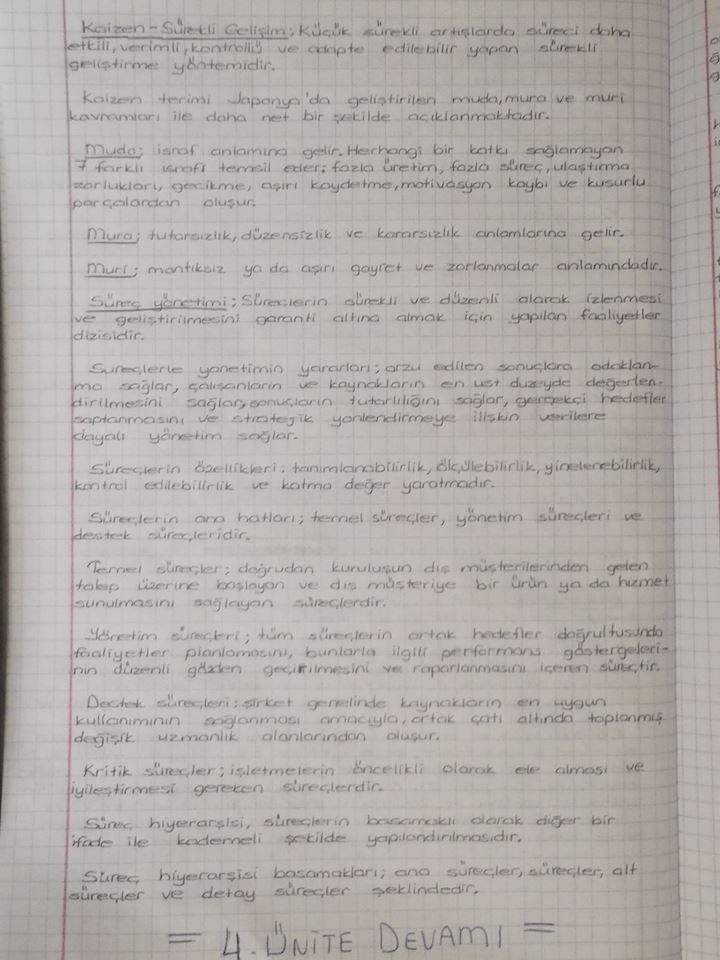 Kaizen - Sürekli Gelişim; Küçük sürekli artışlarda süreci daha
etkili, verimli, kontrollü ve adapte edilebilir yapan sürekli
geliştirme yöntemidir.
Kaizen terimi Japonya'da geliştirilen muda, mura ve muri
kavramları ile daha net bir şekilde açıklanmaktadır.
Muda; israf anlamına gelir. Herhangi bir katkı sağlamayan
7 farklı israfı temsil eder; fazla üretim, fazla süreç, ulaştırma
zorlukları, gecikme, aşırı kaydetme, motivasyon kaybı ve kusurlu
parçalardan oluşur.
Mura; tutarsızlık, düzensizlik ve kararsızlık anlamlarına gelir.
Muri; mantıksız ya da aşırı gayret ve zorlanmalar anlamındadır.
Süreç yönetimi; Süreçlerin sürekli ve düzenli olarak izlenmesi
ve geliştirilmesini garanti altına almak için yapılan faaliyetler
dizisidir.
Süreçlerle yönetimin yararları; arzu edilen sonuçlara odaklan-
ma sağlar, çalışanların ve kaynakların en üst düzeyde değerlen-
dirilmesini sağlar, sonuçların tutarlılığını sağlar, gerçekçi hedefler
saptanmasını ve stratejik yönlendirmeye ilişkin verilere
dayalı yönetim sağlar.
Süreçlerin özellikleri; tanımlanabilirlik, ölçülebilirlik, yinelenebilirlik,
kontrol edilebilirlik ve katma değer yaratmadır.
Süreçlerin ana hatları; temel süreçler, yönetim süreçleri ve
destek süreçleridir.
Temel süreçler; doğrudan kuruluşun dış müşterilerinden gelen
talep üzerine başlayan ve dış müşteriye bir ürün ya da hizmet
sunulmasını sağlayan süreçlerdir.
Yönetim süreçleri; tüm süreçlerin ortak hedefler doğrultusunda
faaliyetler planlamasını, bunlarla ilgili performans göstergeleri-
nin düzenli gözden geçirilmesini ve raporlanmasını içeren süreçtir.
Destek süreçleri; şirket genelinde kaynakların en uygun
kullanımının sağlanması amacıyla, ortak çatı altında toplanmış
değişik uzmanlık alanlarından oluşur.
Kritik süreçler; işletmelerin öncelikli olarak ele alması ve
iyileştirmesi gereken süreçlerdir.
Süreç hiyerarşisi, süreçlerin basamaklı olarak diğer bir
ifade ile kademeli şekilde yapılandırılmasıdır.
Süreç hiyerarşisi basamakları; ana süreçler, süreçler, alt
süreçler ve detay süreçler şeklindedir.
= 4. ÜNİTE DEVAMI =